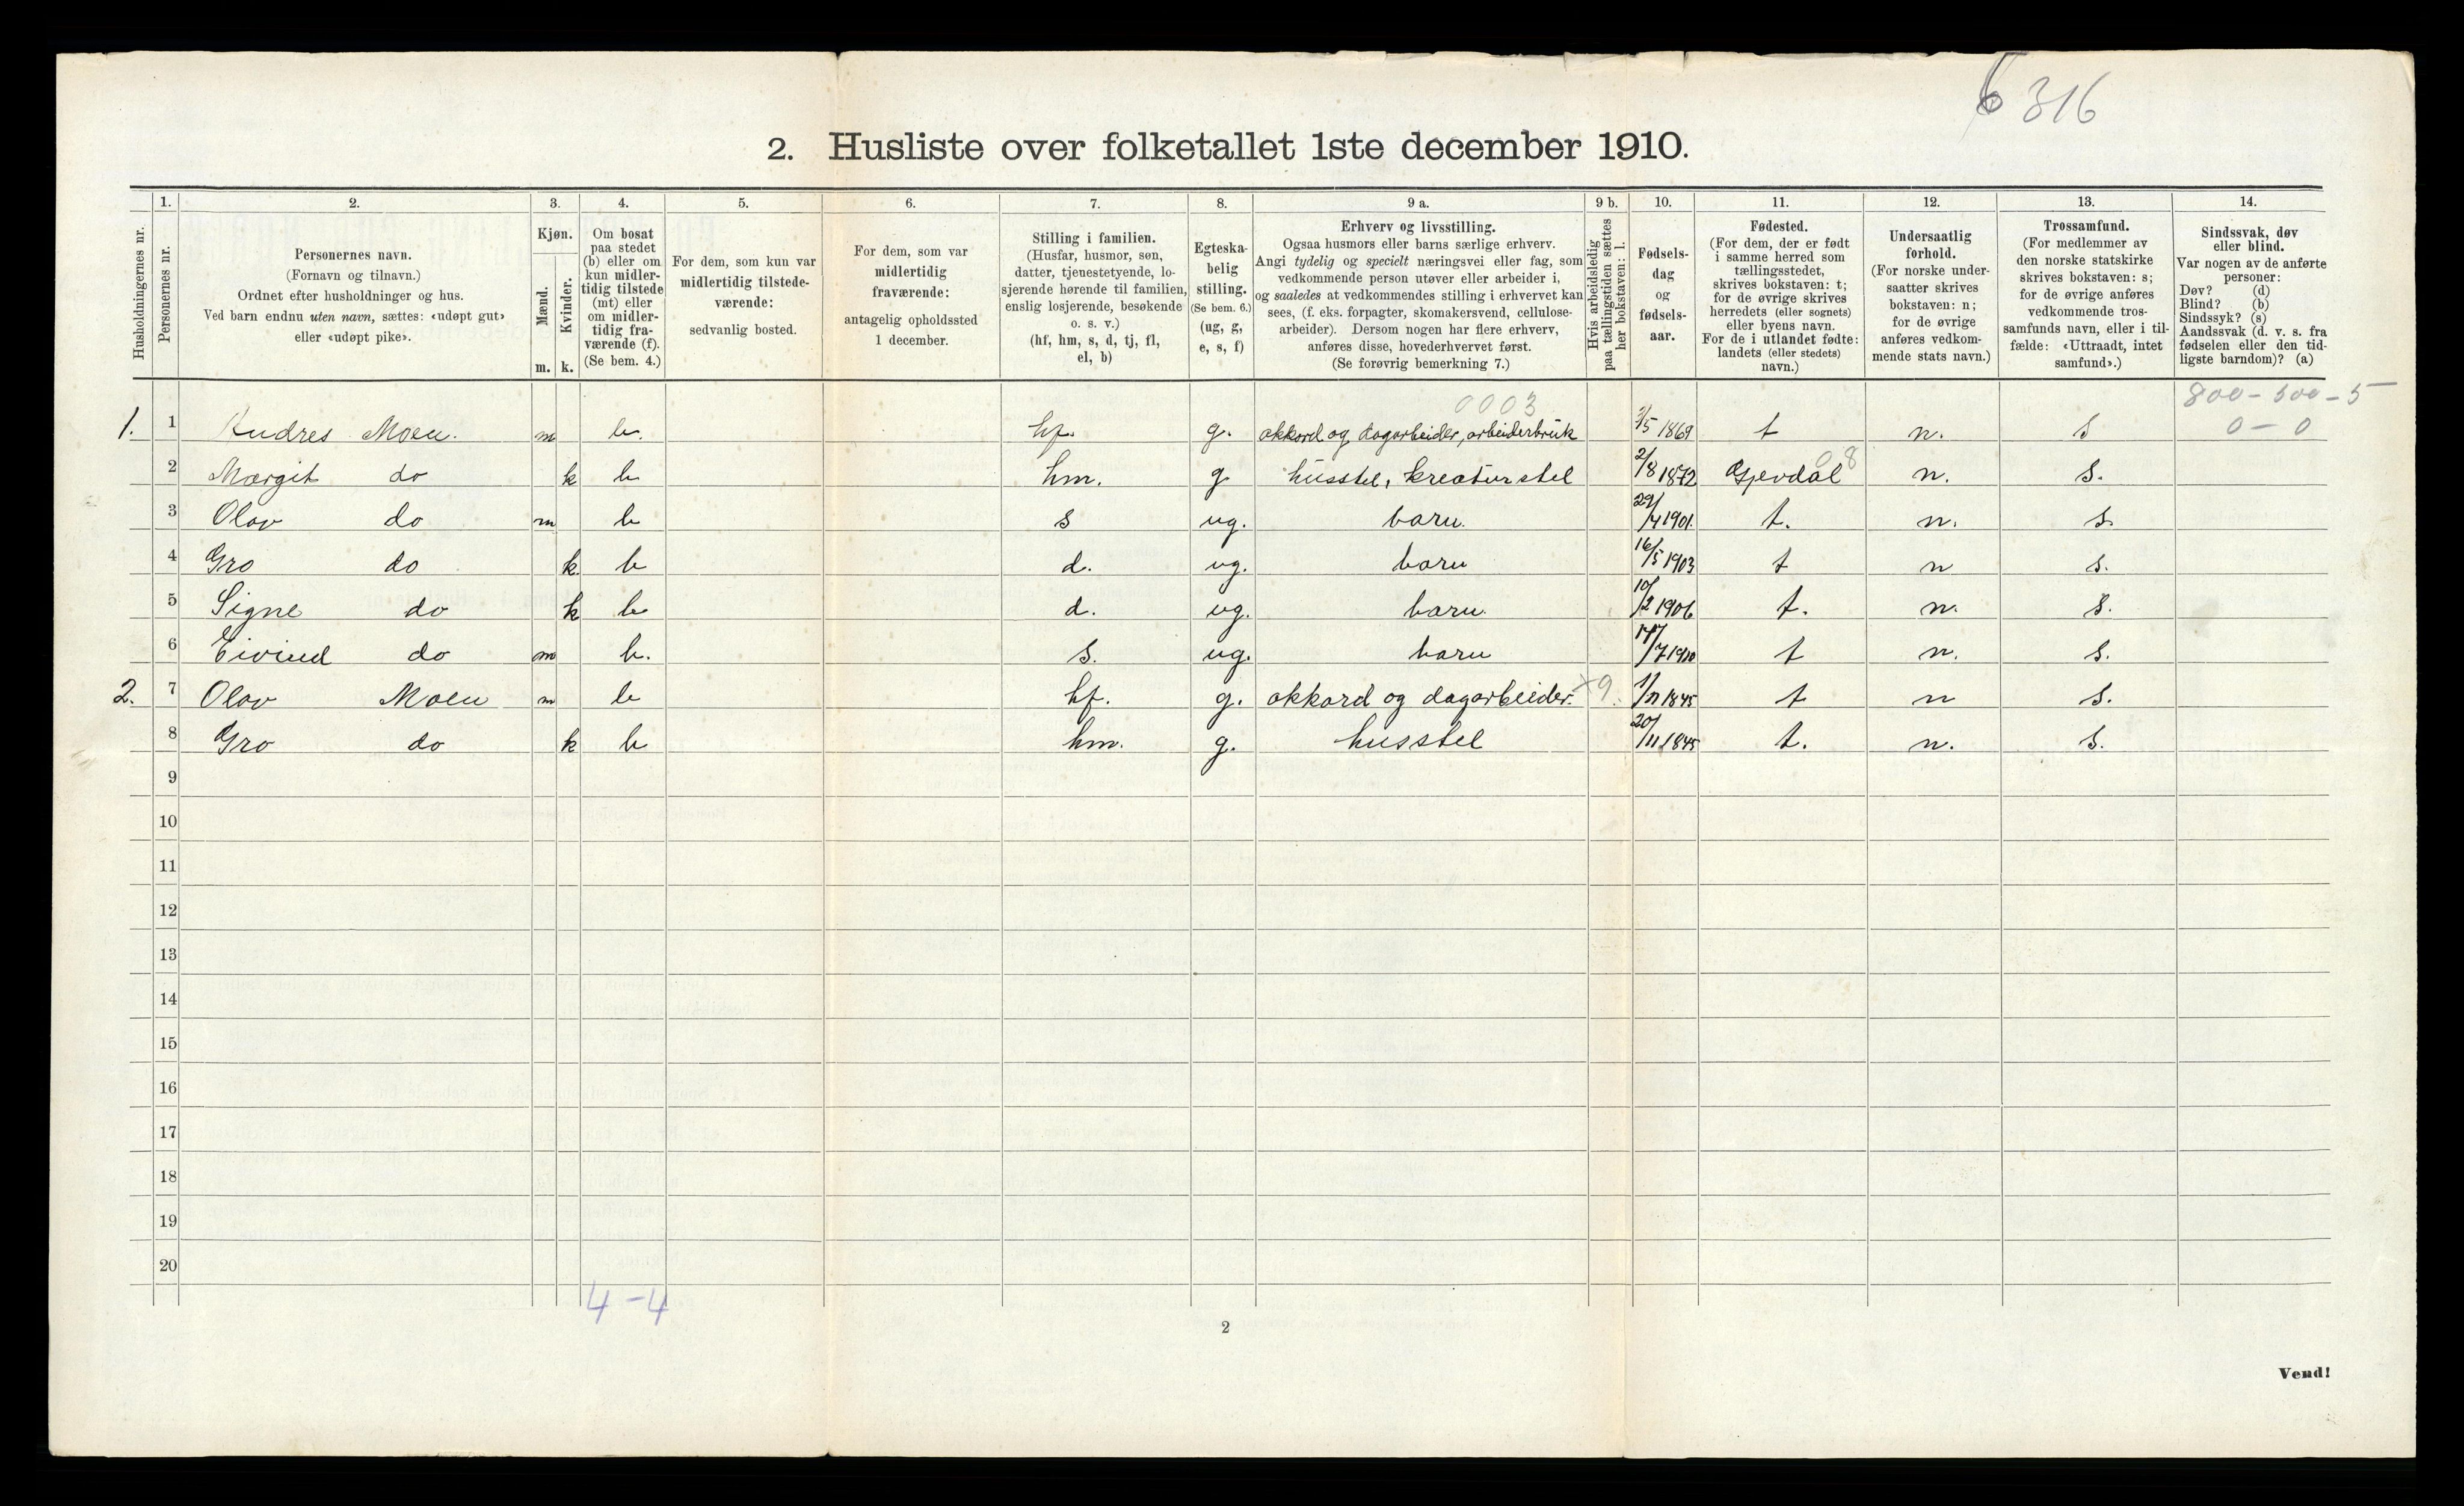 6 316
2. Husliste over folketallet 1ste december 1910.
Husholdningernes nr.
1.
Personernes nr.
2.
Personernes navn.
(Fornavn og tilnavn.)
Ordnet efter husholdninger og hus.
Ved barn endnu uten navn, sættes: «udøpt gut»
eller «udøpt pike».
3.
Kjøn.
Mænd.
Kvinder.
m. k.
4.
Om bosat
paa stedet
(b) eller om
kun midler-
tidig tilstede
(mt) eller
om midler-
tidig fra-
værende (f).
(Se bem. 4.)
5.
For dem, som kun var
midlertidig tilstede-
værende:
sedvanlig bosted.
6.
For dem, som var
midlertidig
fraværende:
antagelig opholdssted
1 december.
7.
Stilling i familien.
(Husfar, husmor, søn,
datter, tjenestetyende, lo-
sjerende hørende til familien,
enslig losjerende, besøkende
o. s. v.)
(hf, hm, s, d, tj, fl,
el, b)
8.
Egteska-
belig
stilling.
(Se bem. 6.)
(ug, g,
e, s, f)
9 a.
Erhverv og livsstilling.
Ogsaa husmors eller barns særlige erhverv.
Angi tydelig og specielt næringsvei eller fag, som
vedkommende person utøver eller arbeider i,
og saaledes at vedkommendes stilling i erhvervet kan
sees, (f. eks. forpagter, skomakersvend, cellulose-
arbeider). Dersom nogen har flere erhverv,
anføres disse, hovederhvervet først.
(Se forøvrig bemerkning 7.)
9 b.
Hvis arbeidsledig
paa tællingstiden sættes
her bokstaven: l.
10.
Fødsels-
dag
og
fødsels-
aar.
11.
Fødested.
(For dem, der er født
i samme herred som
tællingsstedet,
skrives bokstaven: t;
for de øvrige skrives
herredets (eller sognets)
eller byens navn.
For de i utlandet fødte:
landets (eller stedets)
navn.)
12.
Undersaatlig
forhold.
(For norske under-
saatter skrives
bokstaven: n;
for de øvrige
anføres vedkom-
mende stats navn.)
13.
Trossamfund.
(For medlemmer av
den norske statskirke
skrives bokstaven: s;
for de øvrige anføres
vedkommende tros-
samfunds navn, eller i til-
fælde: «Uttraadt, intet
samfund».)
14.
Sindssvak, døv
eller blind.
Var nogen av de anførte
personer:
Døv? (d)
Blind? (b)
Sindssyk? (s)
Aandssvak (d. v. s. fra
fødselen eller den tid-
ligste barndom)? (a)
0003 800 - 500 - 5
1. 1 Andres Moen. m b. hf. g. akkord og dagarbeider, arbeiderbruk 3/5 1869 t n. s 0 - 0
2 Margit do k b hm. g husstel, kreaturstel 2/8 1872 Gjevdal 08 n. s.
3 Olav do m b s ug. barn. 29/4 1901. t. n. s.
4 Gro do k b d. ug. barn 16/5 1903 t n s.
5 Signe do k b d. ug. barn. 10/2 1906 t. n. s.
6 Eivind do m b. s. ug. barn 14/7 1910 t n. s.
2. 7 Olav Moen m b hf. g. akkord og dagarbeider. ×9 1845 t n s.
8 Gro do k b hm. g. husstel 20/11 1845 t. n. s.
9
10
11
12
13
14
15
16
17
18
19
20
4 - 4
2
Vend!